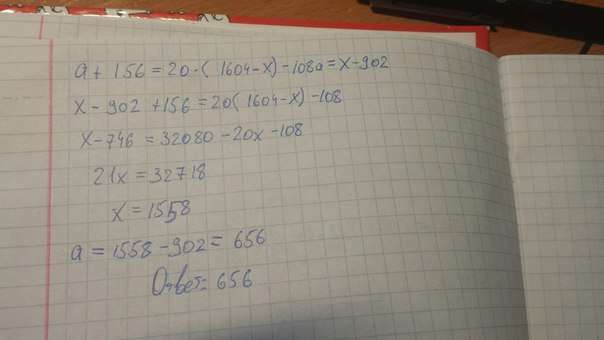 a + 156 = 20·( 1604-x) - 108a = x - 902
x - 902 + 156 = 20( 1604-x) - 108
x - 746 = 32080 - 20x - 108
21x = 32718
x = 1558
a = 1558 - 902 = 656
Ответ= 656